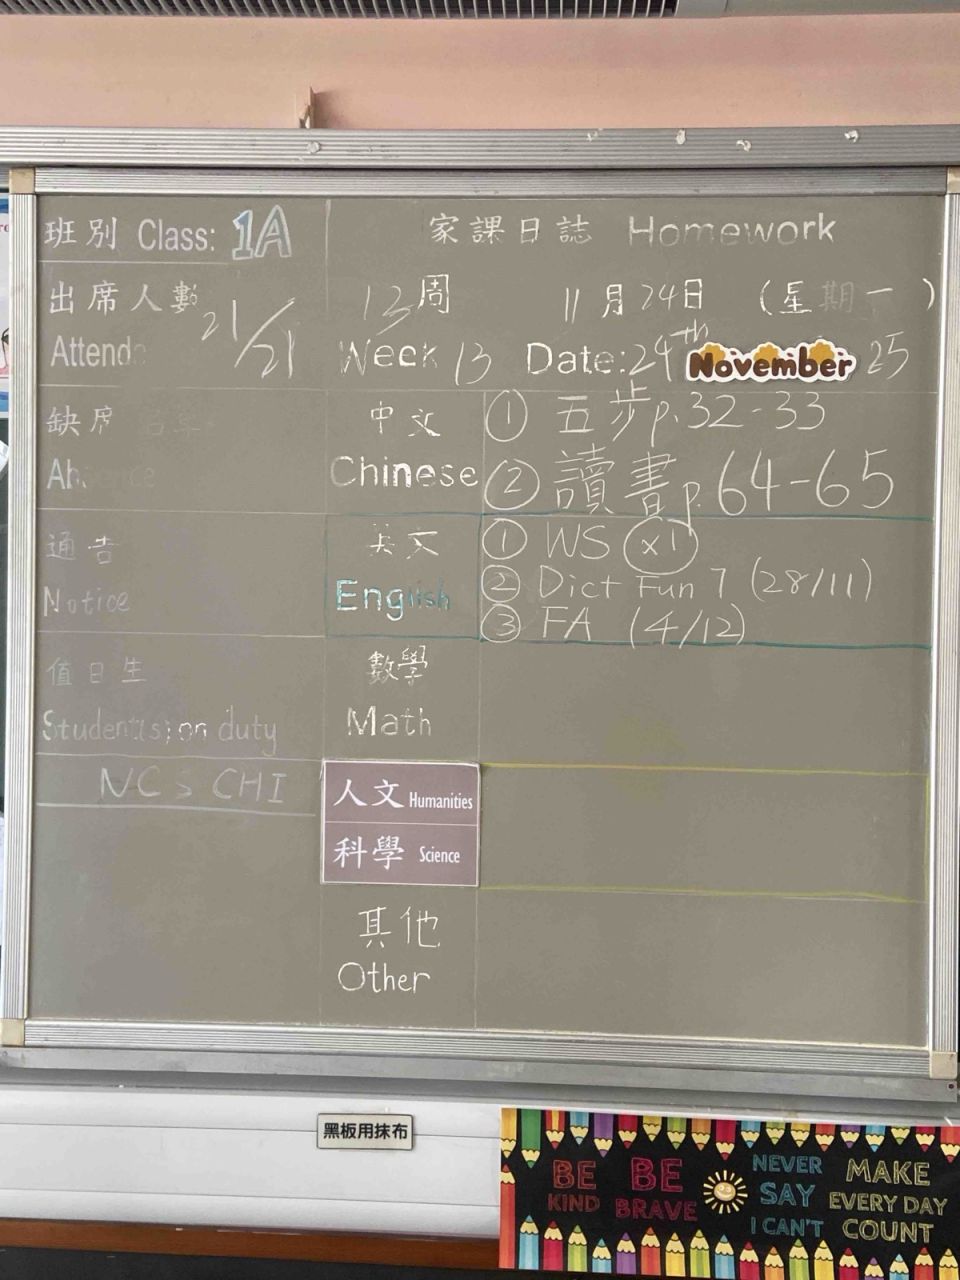 班別 Class: 1A
家課日誌 Homework
出席人數 21/21
Attend
13周 11月24日 (星期一)
Week 13 Date: 24th November 25
缺席
中文 Chinese
① 五步p.32-33
② 讀書p.64-65
通告
Notice
英文 English
① WS (x1)
② Dict Fun 7 (28/11)
③ FA (4/12)
值日生
Student(s) on duty
數學
Math
NCS CHI
人文 Humanities
科學 Science
其他
Other
黑板用抹布
BE KIND
BE BRAVE
NEVER SAY I CAN'T
MAKE EVERY DAY COUNT